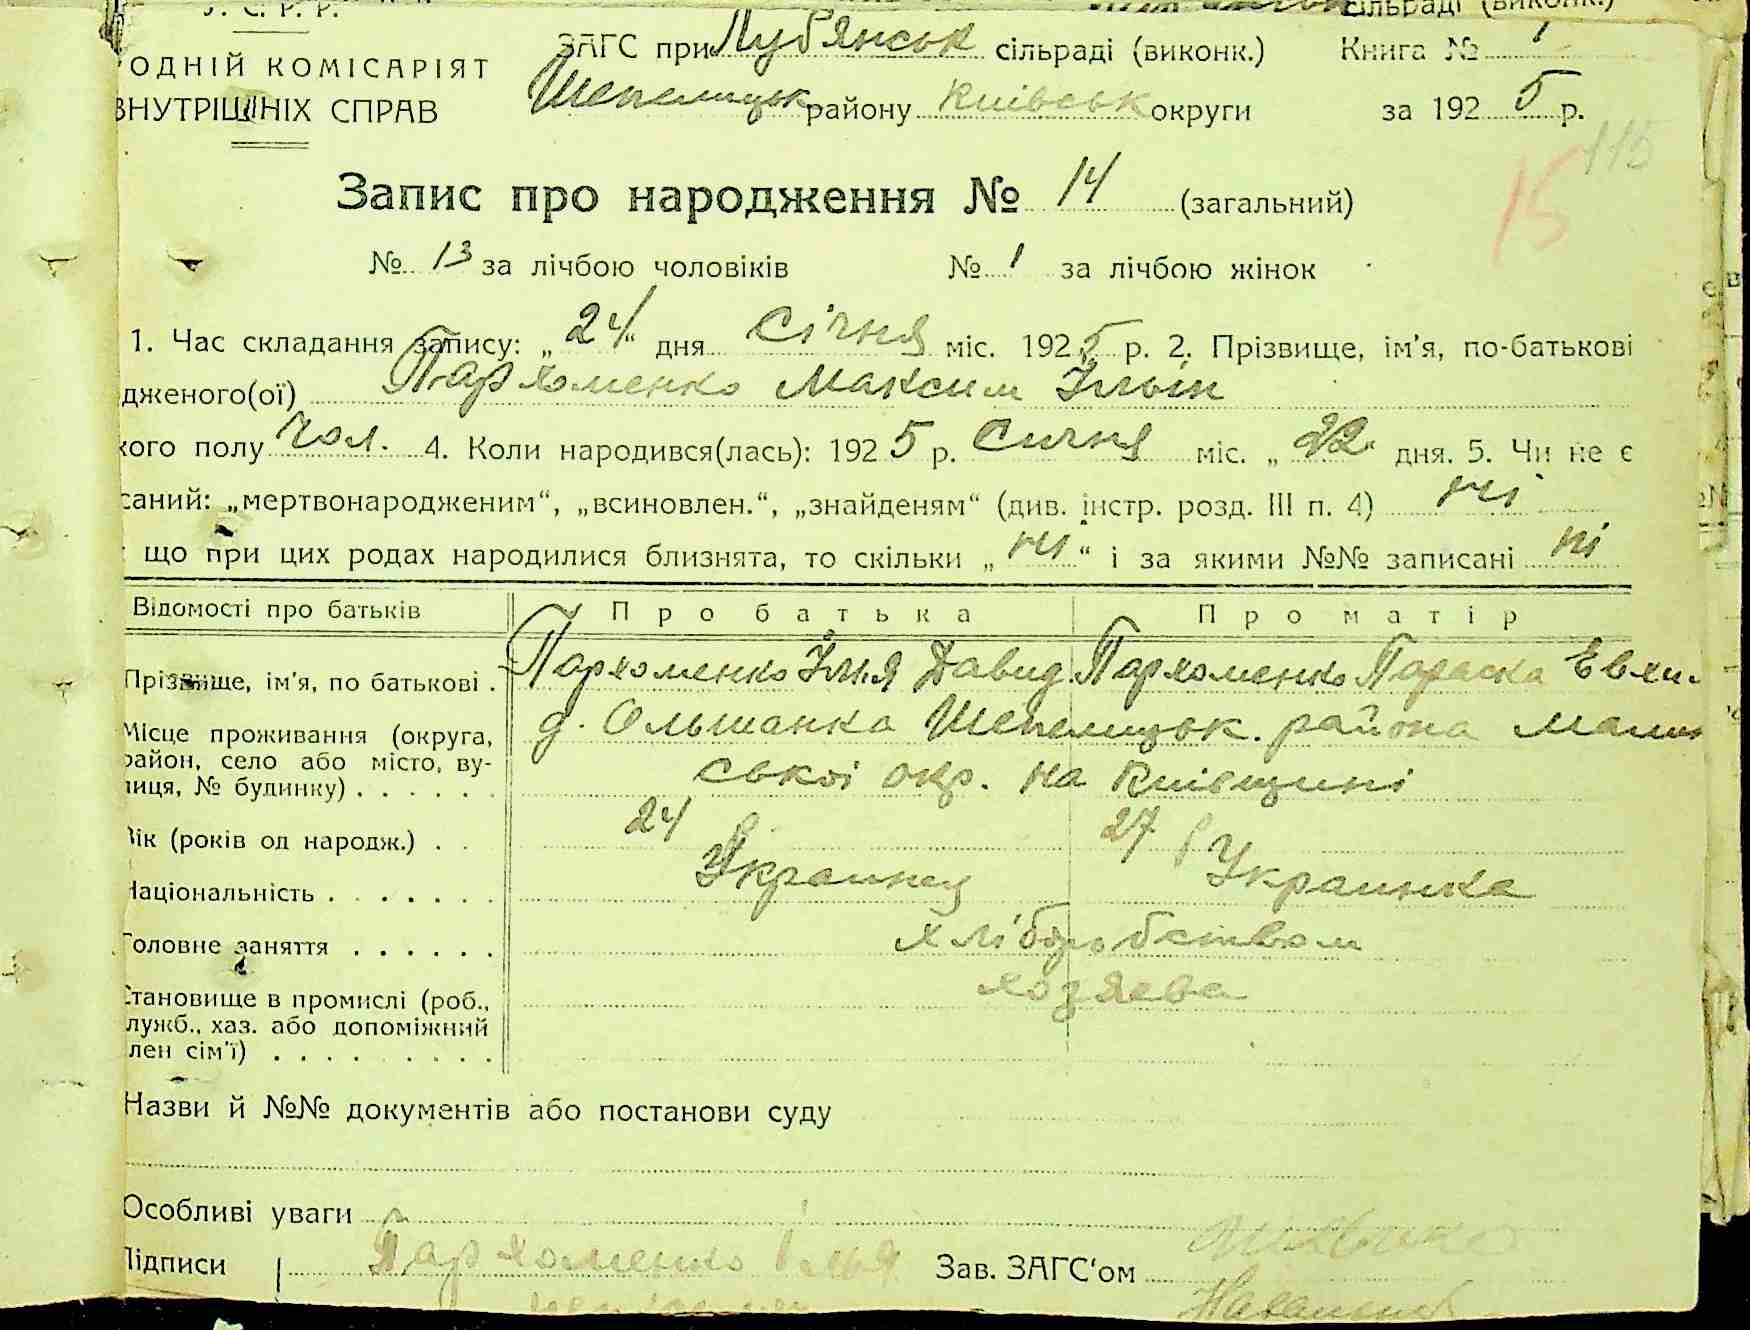 У. С. Р. Р.
сільраді (виконк.)
ОДНІЙ КОМІСАРІЯТ
ВНУТРІШНІХ СПРАВ
ЗАГС при Луб'янськ сільраді (виконк.) Книга № 1
Шепелицьк району Київськ округи за 1925 р.
115
15
Запис про народження № 14 (загальний)
№ 13 за лічбою чоловіків № 1 за лічбою жінок
1. Час складання запису: „24“ дня січня міс. 1925 р. 2. Прізвище, ім'я, по-батькові
дженого(ої) Пархоменко Максим Ільїн
кого полу чол. 4. Коли народився(лась): 1925 р. Сичня міс. „22“ дня. 5. Чи не є
саний: „мертвонародженим“, „всиновлен.“, „знайденям“ (див. інстр. розд. III п. 4) ні
що при цих родах народилися близнята, то скільки „ні“ і за якими №№ записані ні
Відомості про батьків Про батька Про матір
Прізвище, ім'я, по батькові . Пархоменко Ілья Давид. Пархоменко Параска Евхи
Місце проживання (округа, район, село або місто, вулиця, № будинку) . . . . . . д. Ольшанка Шепелицьк. района Малин
ської окр. на Київщині
Вік (років од народж.) . . 24 27
Національність . . . . . . . Украинец Украинка
Головне заняття . . . . . . хліборобством
Становище в промислі (роб.,
служб., хаз. або допоміжний
лен сім'ї) . . . . . . . . . хозяева
Назви й №№ документів або постанови суду
Особливі уваги
Підписи Пархоменко Ілья Зав. ЗАГС'ом